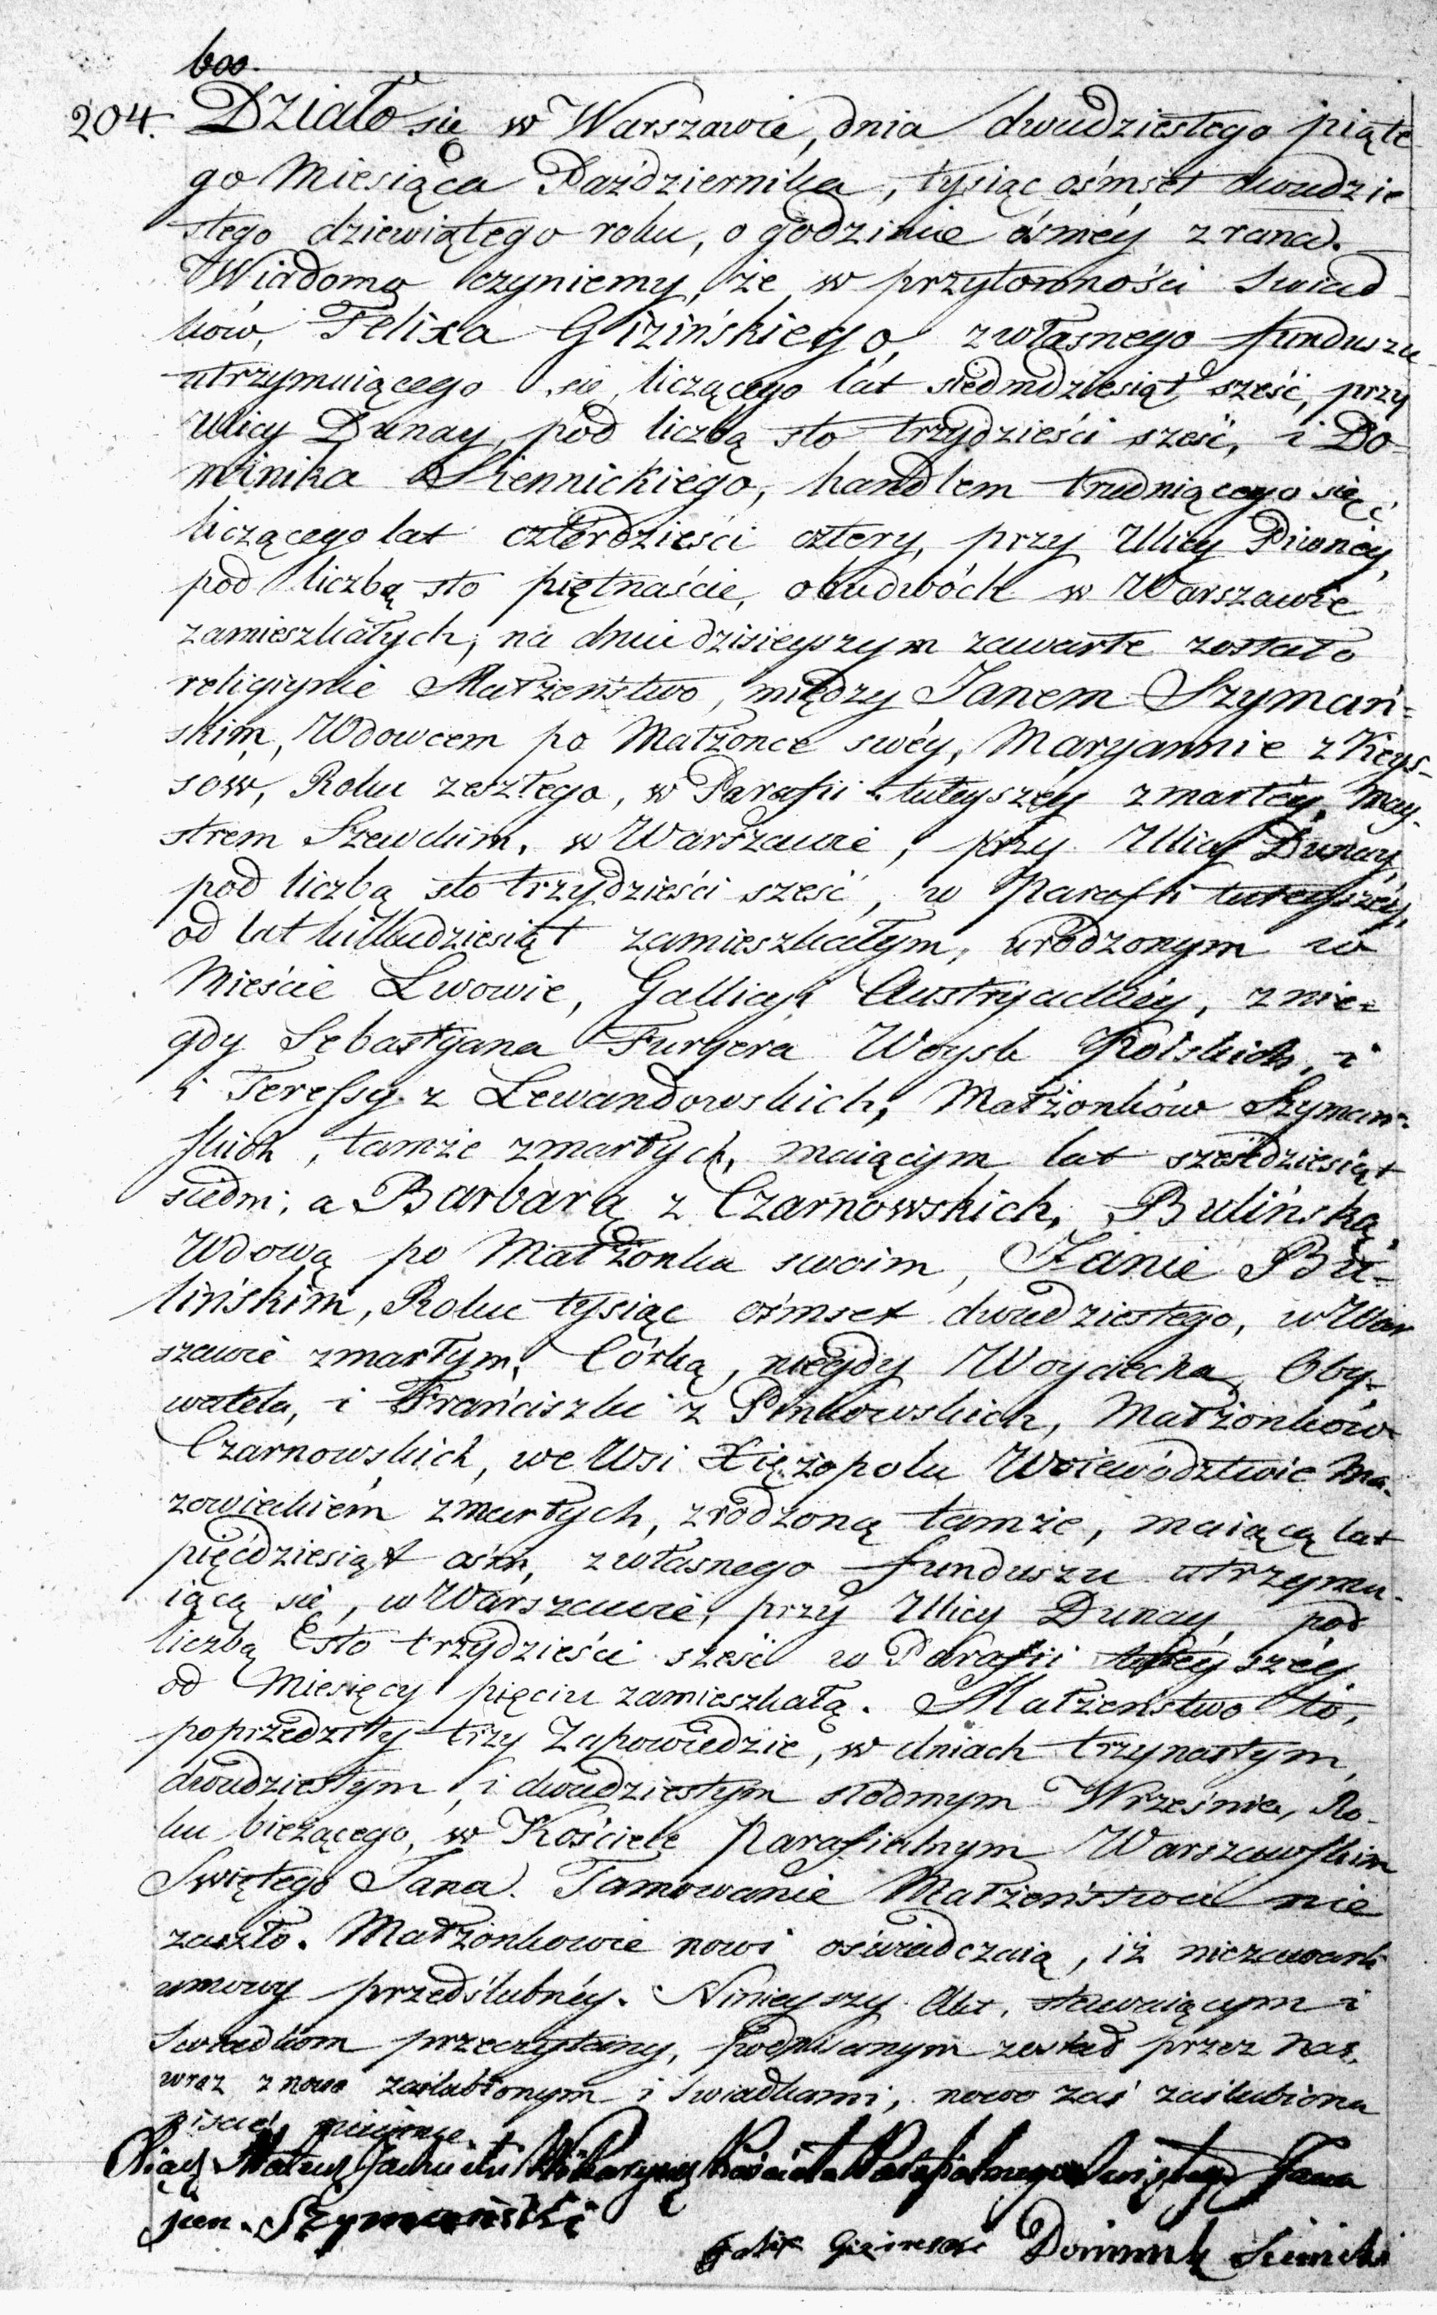 600.
204. Działo się w Warszawie, dnia dwudziestego piąte
go Miesiąca Października, tysiąc ośmset dwudzie
stego dziewiątego roku, o godzinie ósméy zrana.
Wiadomo czyniemy, że w przytomności Swiad
ków, Felixa Giżińskiego, z własnego funduszu
utrzymuiącego się, liczącego lat siedmdziesiąt sześć, przy
Ulicy Dunay, pod liczbą sto trzydzieści sześć, i Do-
minika Siennickiego, handlem trudniącego się,
liczącego lat czterdzieści cztery, przy Ulicy Piwnéy,
pod liczbą sto piętnaście, obudwóch w Warszawie
zamieszkałych, na dniu dzisieyszym zawarte zostało
religiynie Małżeństwo, między Janem Szymań-
skim, Wdowcem po Małżonce swéy, Maryannie z Keys-
sów, Roku zeszłego, w Parafii tuteyszéy zmarłéy, May-
strem Szewckim, w Warszawie, przy Ulicy Dunay,
pod liczbą sto trzydzieści sześć, w Parafii tuteyszéy,
od lat kilkudziesiąt zamieszkałym, urodzonym w
Mieście Lwowie, Gallicyi Austryackiéy, z nie-
gdy Sebastyana Furyera Woysk Polskich, i
i Teressy z Lewandowskich, Małżonków Szymań-
skich, tamże zmarłych, maiącym lat sześćdziesiąt
siedm; a Barbarą z Czarnowskich, Bulińską,
Wdową po Małżonku swoim, Janie Bu-
lińskim, Roku tysiąc ośmset dwudziestego, w War
szawie zmarłym, Córką, niegdy Woyciecha, Oby-
watela, i Franciszki z Pinkowskich, Małżonków
Czarnowskich, we Wsi Xiężopolu Woiewództwie Ma-
zowieckiém zmarłych, zrodzoną tamże, maiącą lat
pięćdziesiąt ośm, z własnego funduszu utrzymu-
iącą się, w Warszawie, przy Ulicy Dunay, pod
liczbą sto trzydzieści sześć w Parafii tuteyszéy
od Miesięcy pięciu zamieszkałą. Małżeństwo to,
poprzedziły trzy Zapowiedzie, w dniach trzynastym,
dwudziestym, i dwudziestym siódmym Września, Ro-
ku bieżącego, w Kościele Parafialnym Warszawskim
Swiętego Jana. Tamowanie Małżeństwa nie
zaszło. Małżonkowie nowi oświadczaią, iż niezawarli
umowy przedślubnéy. Ninieyszy Akt, stawaiącym i
Swiadkom przeczytany, podpisanym został przez Nas,
wraz z nowo zaślubionym i Swiadkami, nowo zaś zaślubiona
pisać nieumie.
Xiądz Mateusz Wikaryusz Kościoła Parafialnego Swiętego Jana
jan. Szymański
Felix Giżiński Dominik Sienicki